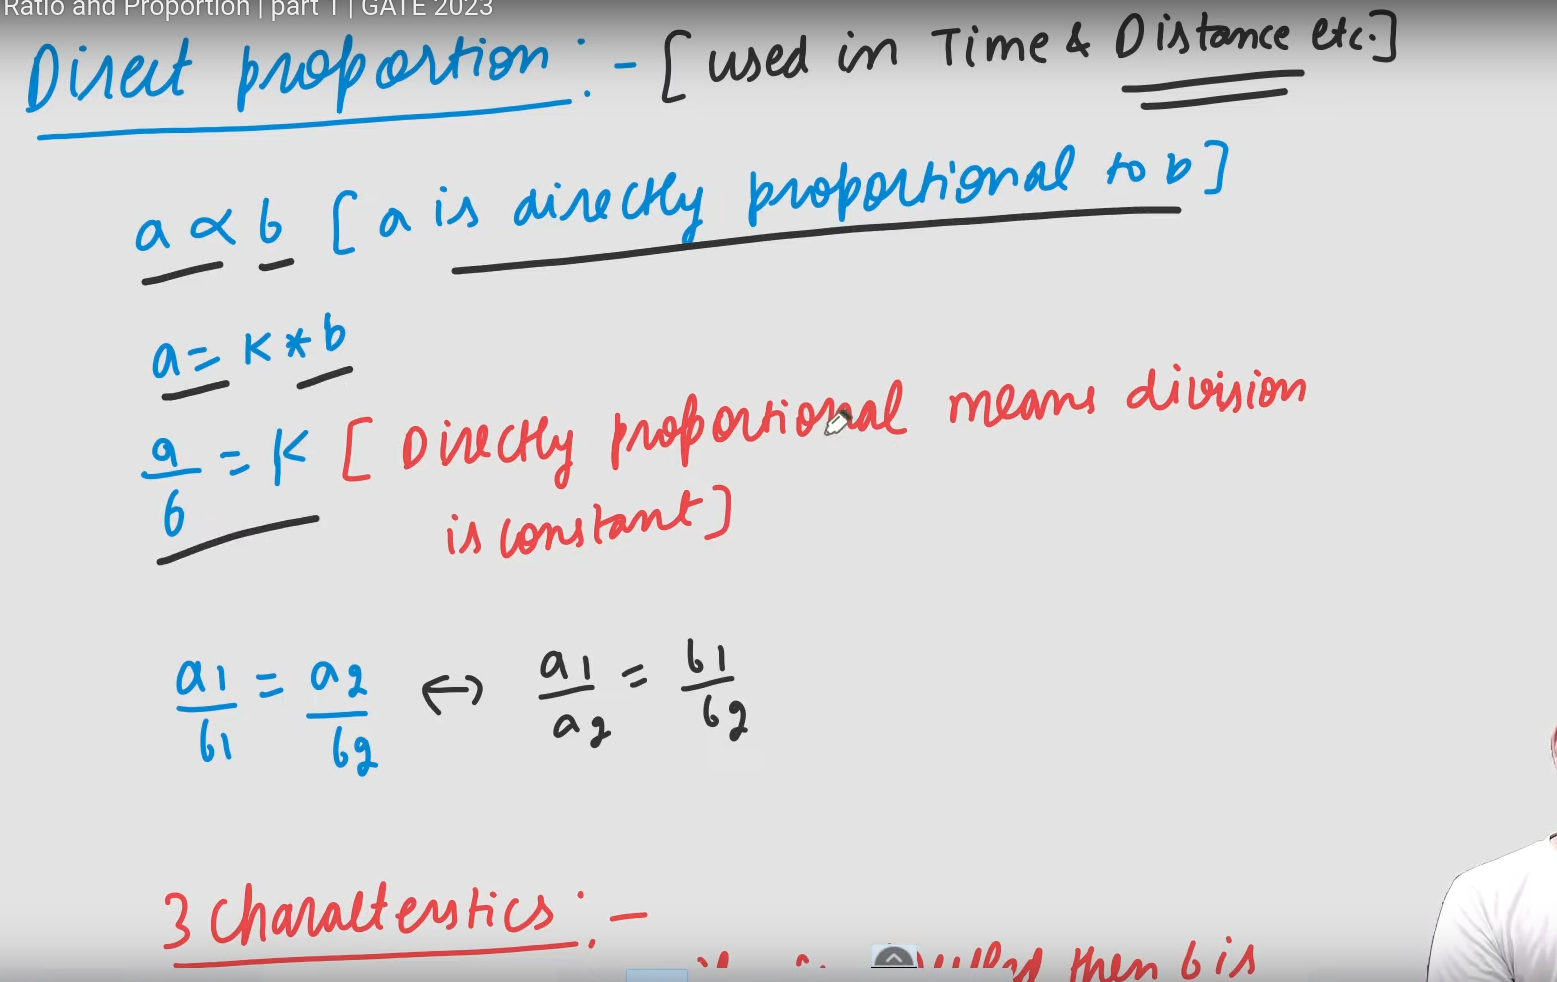 Ratio and Proportion | part 1 | GATE 2023
Direct proportion :- [used in Time & Distance etc.]
a ∝ b [a is directly proportional to b]
a = K * b
a/b = K [Directly proportional means division
is constant]
a1/b1 = a2/b2 ↔ a1/a2 = b1/b2
3 characterstics :-
then b is